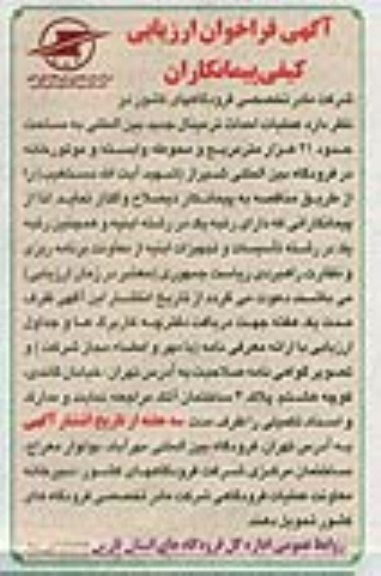 آگهی فراخوان ارزیابی
کیفی پیمانکاران
شرکت مادر تخصصی فرودگاههای کشور در
نظر دارد عملیات احداث ترمینال جدید بین المللی به مساحت
حدود ۲۱ هزار مترمربع و محوطه وابسته و موتورخانه
در فرودگاه بین المللی شیراز (شهید آیت الله دستغیب) را
از طریق مناقصه به پیمانکار ذیصلاح واگذار نماید. لذا از
پیمانکارانی که دارای رتبه یک در رشته ابنیه و همچنین رتبه
یک در رشته تأسیسات و تجهیزات ابنیه از معاونت برنامه ریزی
و نظارت راهبردی ریاست جمهوری (معتبر در زمان ارزیابی)
می باشند، دعوت می گردد از تاریخ انتشار این آگهی ظرف
مدت یک هفته جهت دریافت دفترچه کاربرگ ها و جداول
ارزیابی با ارائه معرفی نامه (با مهر و امضاء مجاز شرکت) و
تصویر گواهی نامه صلاحیت به آدرس تهران، خیابان گاندی،
کوچه هشتم، پلاک ۳ ساختمان آتک مراجعه نمایند و مدارک
و اسناد تکمیلی را ظرف مدت سه هفته از تاریخ انتشار آگهی
به آدرس تهران، فرودگاه بین المللی مهرآباد، بولوار معراج،
ساختمان مرکزی شرکت فرودگاههای کشور، دبیرخانه
معاونت عملیات فرودگاهی شرکت مادر تخصصی فرودگاه های
کشور تحویل دهند.
روابط عمومی اداره کل فرودگاه های استان فارس